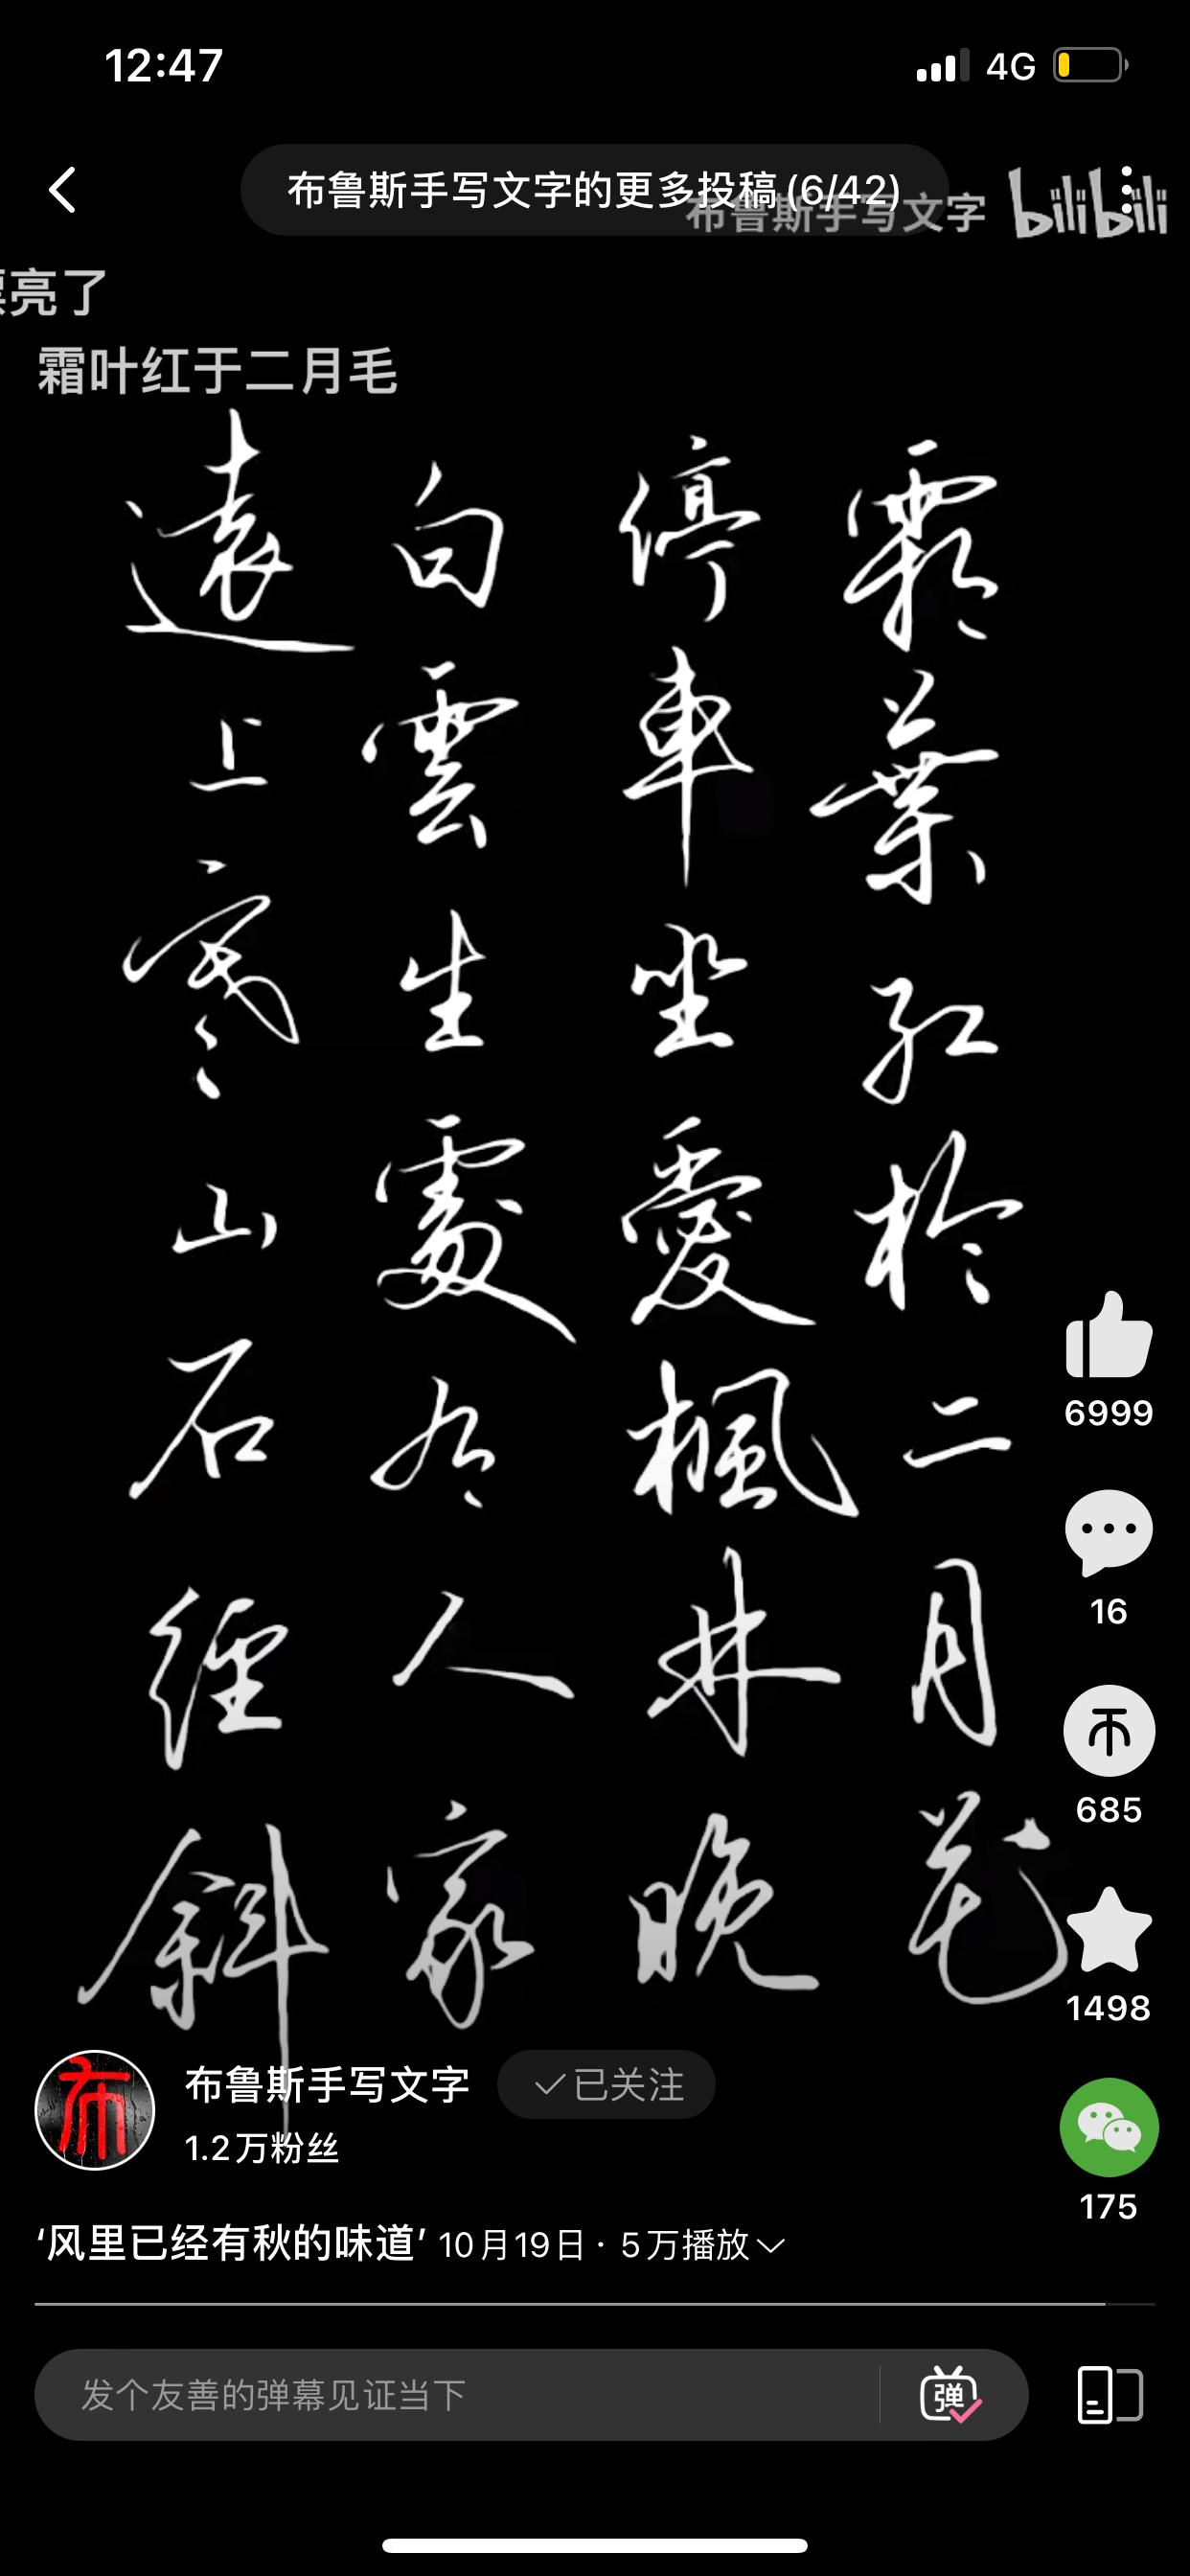 12:47
4G
布鲁斯手写文字的更多投稿(6/42)
布鲁斯手写文字 bilibili
亮了
霜叶红于二月毛
遠上寒山石徑斜
白雲生處有人家
停車坐愛楓林晚
霜葉紅於二月花
6999
16
685
1498
175
布
布鲁斯手写文字
已关注
1.2万粉丝
‘风里已经有秋的味道’ 10月19日 · 5万播放
发个友善的弹幕见证当下
弹